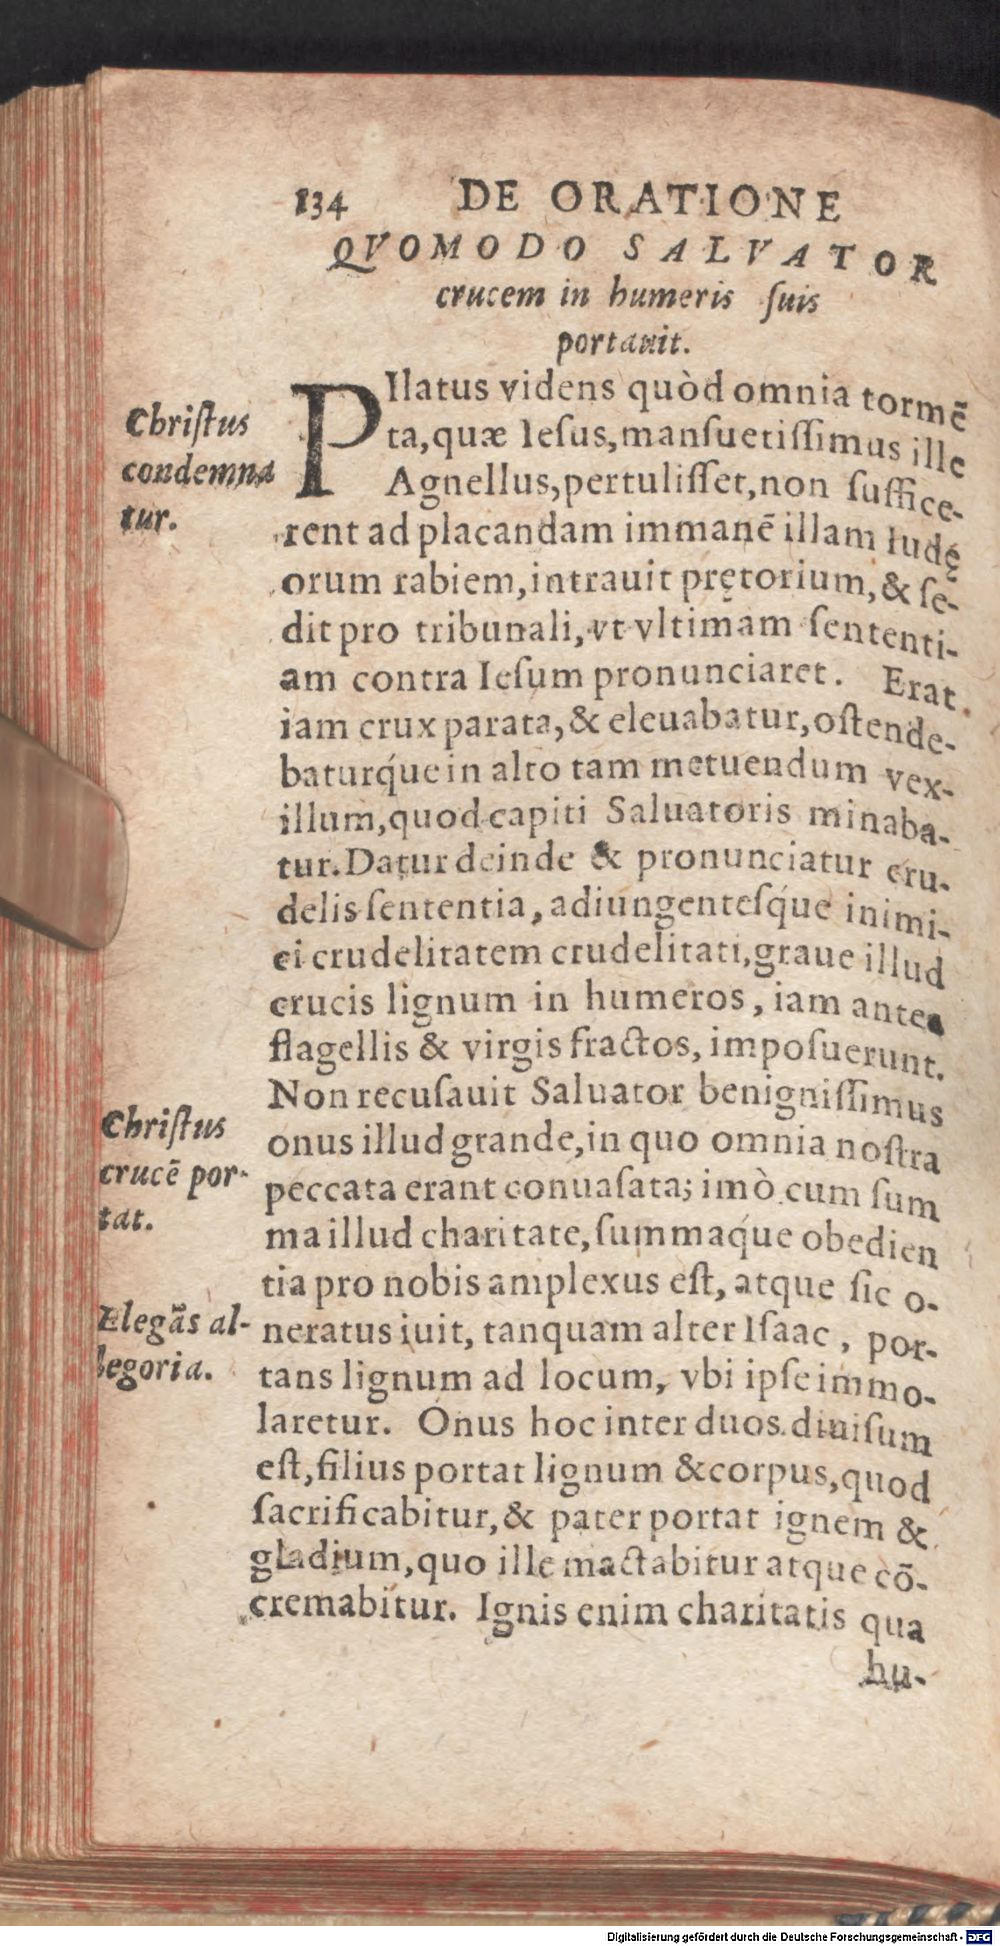 134 DE ORATIONE
QVOMODO SALVATOR
crucem in humeris ſuis
portauit.
PIlatus videns quòd omnia tormẽ
ta,quæ Ieſus,manſuetiſſimus ille
Agnellus,pertuliſſet,non ſuffice-
rent ad placandam immanẽ illam Iudę
orum rabiem,intrauit prętorium,& ſe-
dit pro tribunali, vt vltimam ſententi-
am contra Ieſum pronunciaret. Erat
iam crux parata,& eleuabatur,oſtende-
baturq́ue in alto tam metuendum vex-
illum,quod capiti Saluatoris minaba-
tur.Datur deinde & pronunciatur cru-
delis ſententia, adiungenteſq́ue inimi-
ci crudelitatem crudelitati,graue illud
crucis lignum in humeros, iam antea
flagellis & virgis fractos, impoſuerunt.
Non recuſauit Saluator benigniſſimus
onus illud grande,in quo omnia noſtra
peccata erant conuaſata; imò cum ſum
ma illud charitate,ſummaq́ue obedien
tia pro nobis amplexus eſt, atque ſic o-
neratus iuit, tanquam alter Iſaac, por-
tans lignum ad locum, vbi ipſe immo-
laretur. Onus hoc inter duos diuiſum
eſt,filius portat lignum & corpus,quod
ſacrificabitur,& pater portat ignem &
gladium,quo ille mactabitur atque cõ-
cremabitur. Ignis enim charitatis qua
hu-
Chriſtus
condemna
tur.
Chriſtus
crucẽ por-
tat.
Elegãs al-
legoria.
Digitalisierung gefördert durch die Deutsche Forschungsgemeinschaft - DFG